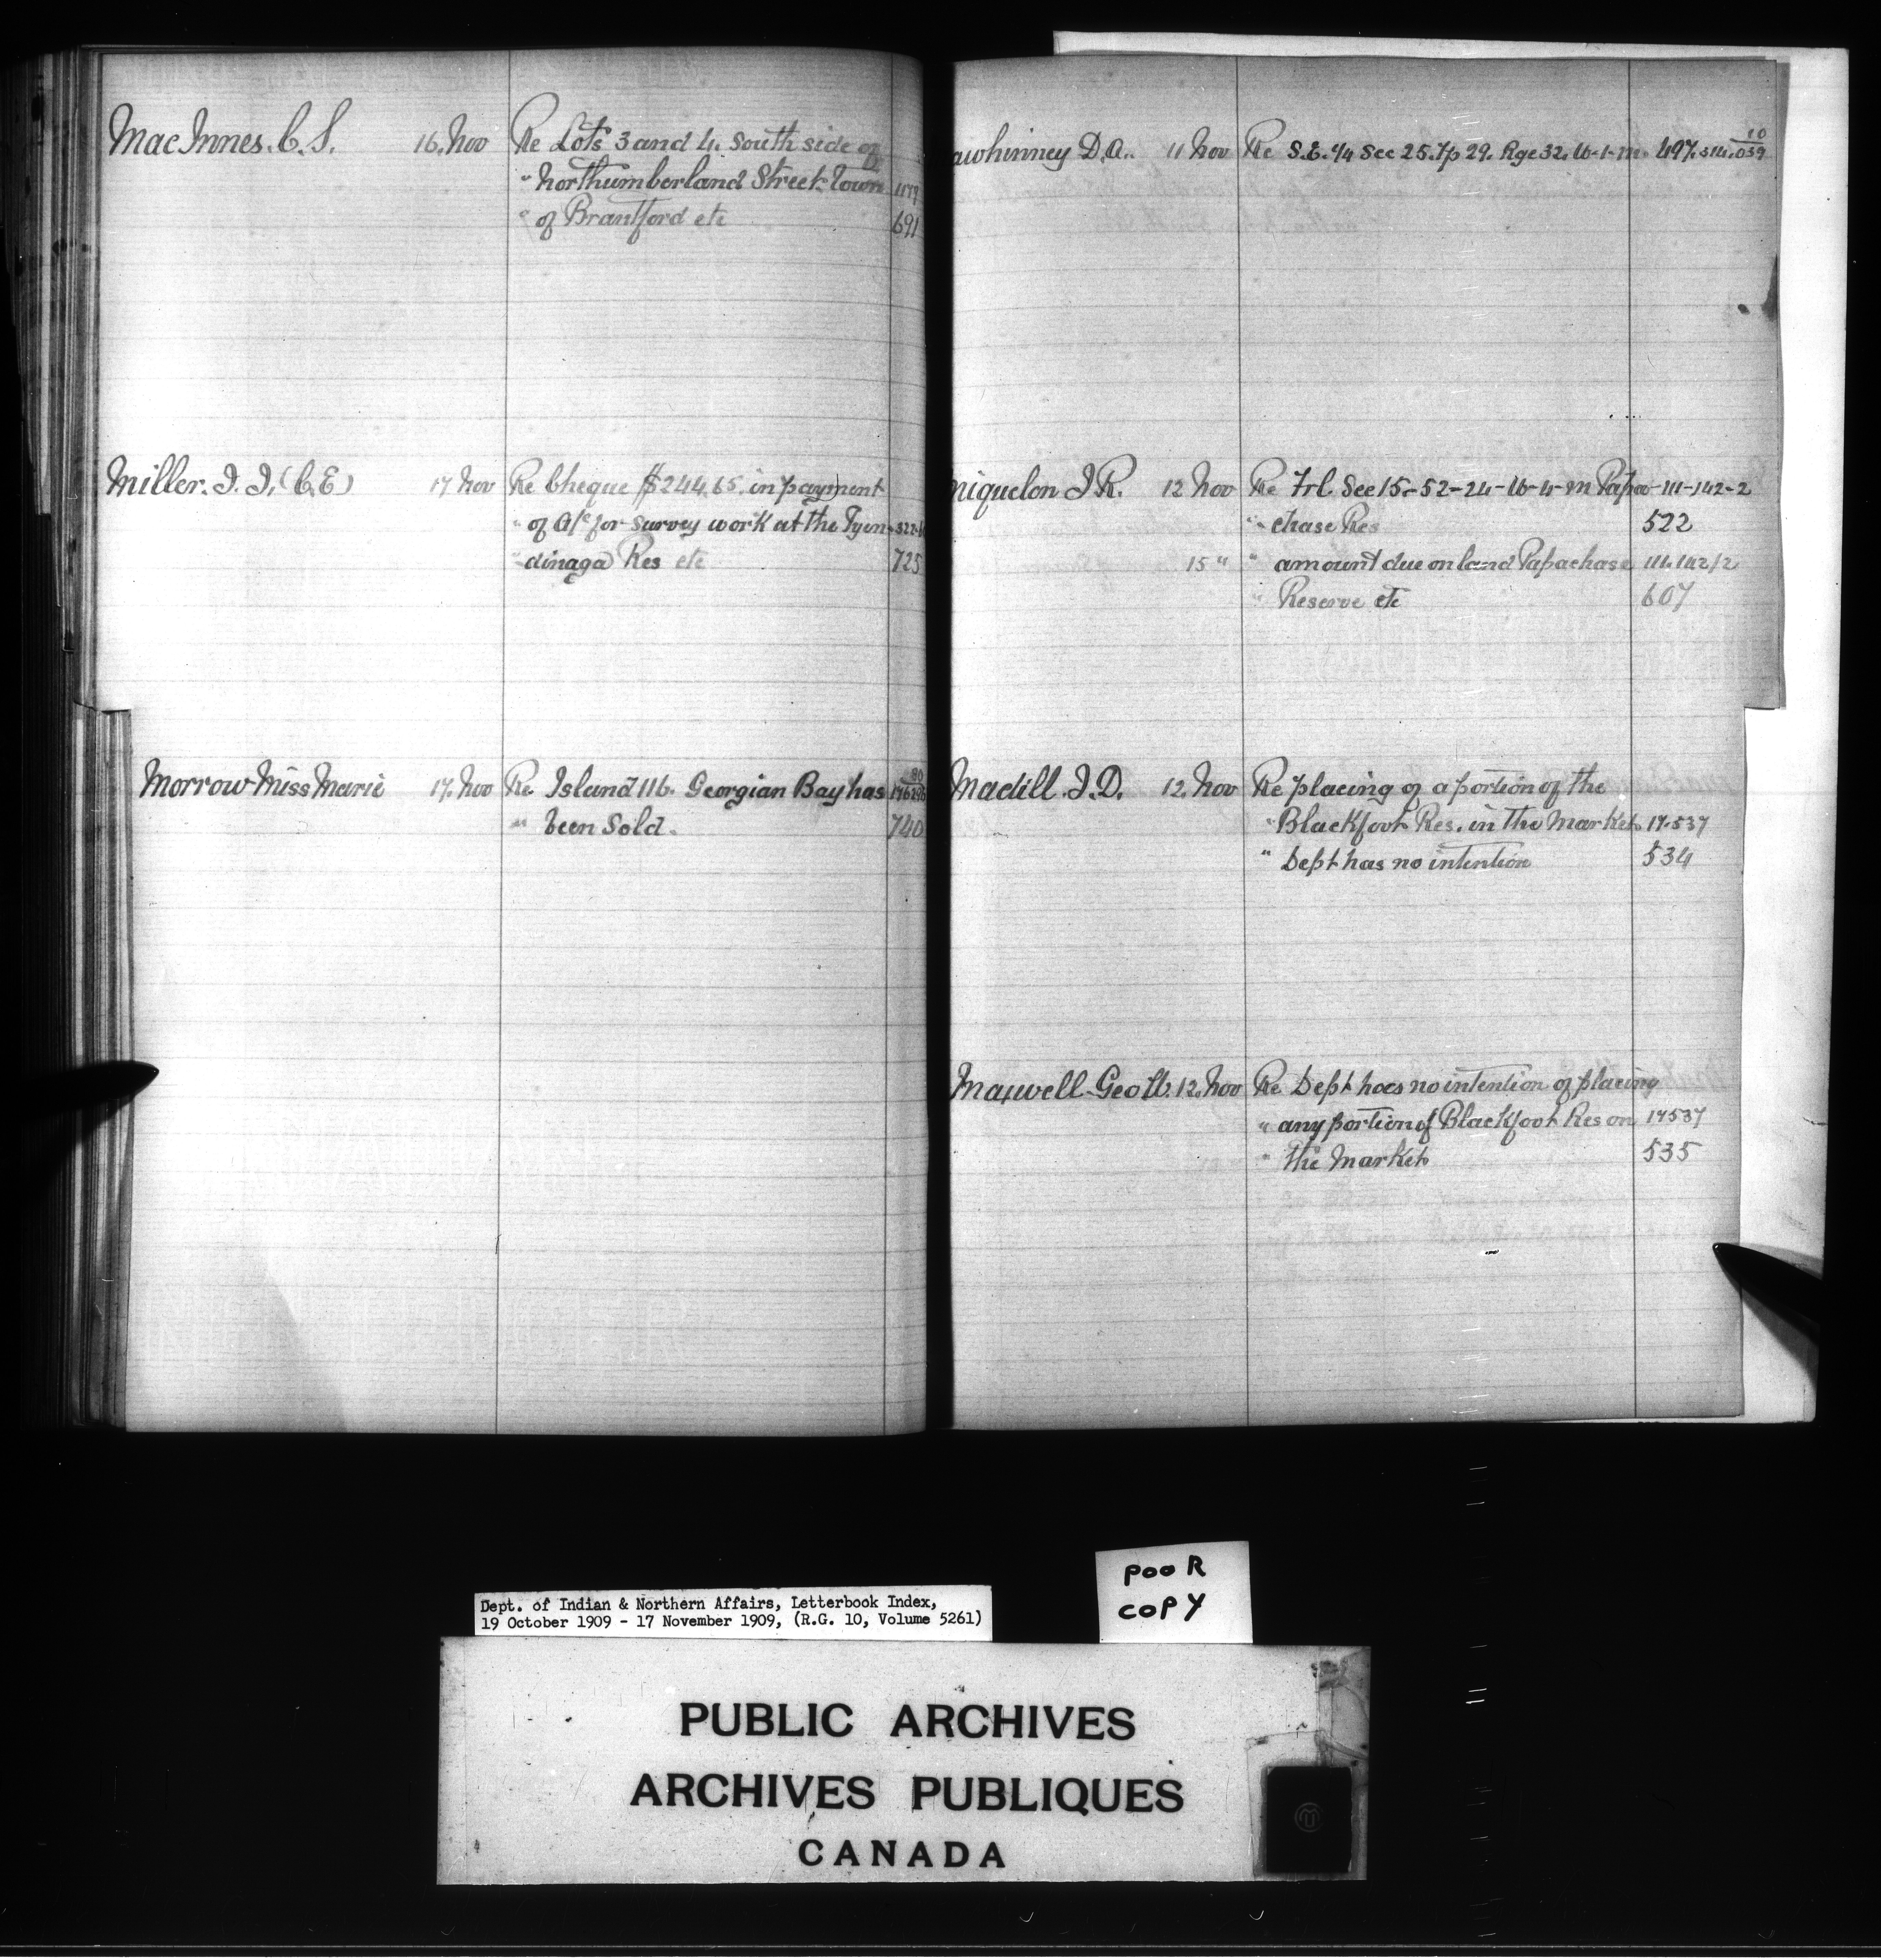 Mac Innes. C. S. 16. Nov Re Lots 3 and 4. South side of
" Northumberland Street. Town 1179
" of Brantford etc 691
Miller. J. J. (C.E) 17 Nov Re Cheque $244.65. in payment
" of A/c for survey work at the Tyen-
" dinaga Res etc 725
Morrow Miss Marie 17. Nov Re Island 116. Georgian Bay has
" been Sold. 740
awhinney D.A.. 11 Nov Re S.E. 1/4 Sec 25. Tp 29. Rge 32. W-1-m. 497. 314.039
10
niquelon J. R. 12 Nov Re Frl. Sec 15-52-24-W-4-m Papa 111-142-2
" chase Res 522
15 " " amount due on land Papachase 111.142/2
" Reserve etc 607
Madill. J. D. 12. Nov Re placing of a portion of the
" Blackfoot Res. in the Market 17.537
" Dept has no intention 534
Maxwell Geo W. 12. Nov Re Dept has no intention of placing
" any portion of Blackfoot Res on 17537
" the Market 535
Dept. of Indian & Northern Affairs, Letterbook Index,
19 October 1909 - 17 November 1909, (R.G. 10, Volume 5261)
POOR
COPY
PUBLIC ARCHIVES
ARCHIVES PUBLIQUES
CANADA